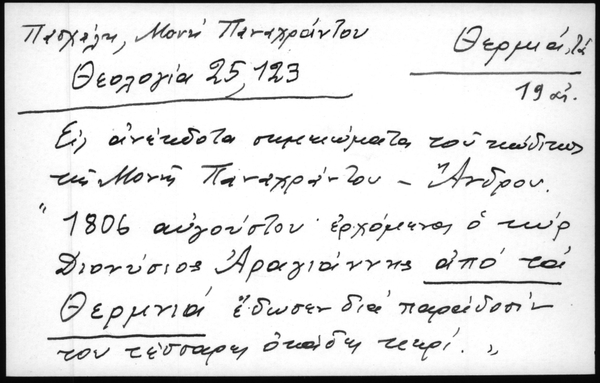 Πασχάλη, Μονή Παναχράντου
Θερμιά, τά
Θεολογία 25, 123
19 αἰ.
Εἰς ἀνέκδοτα σημειώματα τοῦ κώδικος
τῆς Μονῆς Παναχράντου - Ἄνδρου.
" 1806 αὐγούστου ἐρχόμενος ὁ κύρ
Διονύσιος Ἀραγιάννης ἀπό τά
Θερμνιά ἔδωσεν διά παράδοσιν
του τέσσαρες ὀκάδες κερί. "